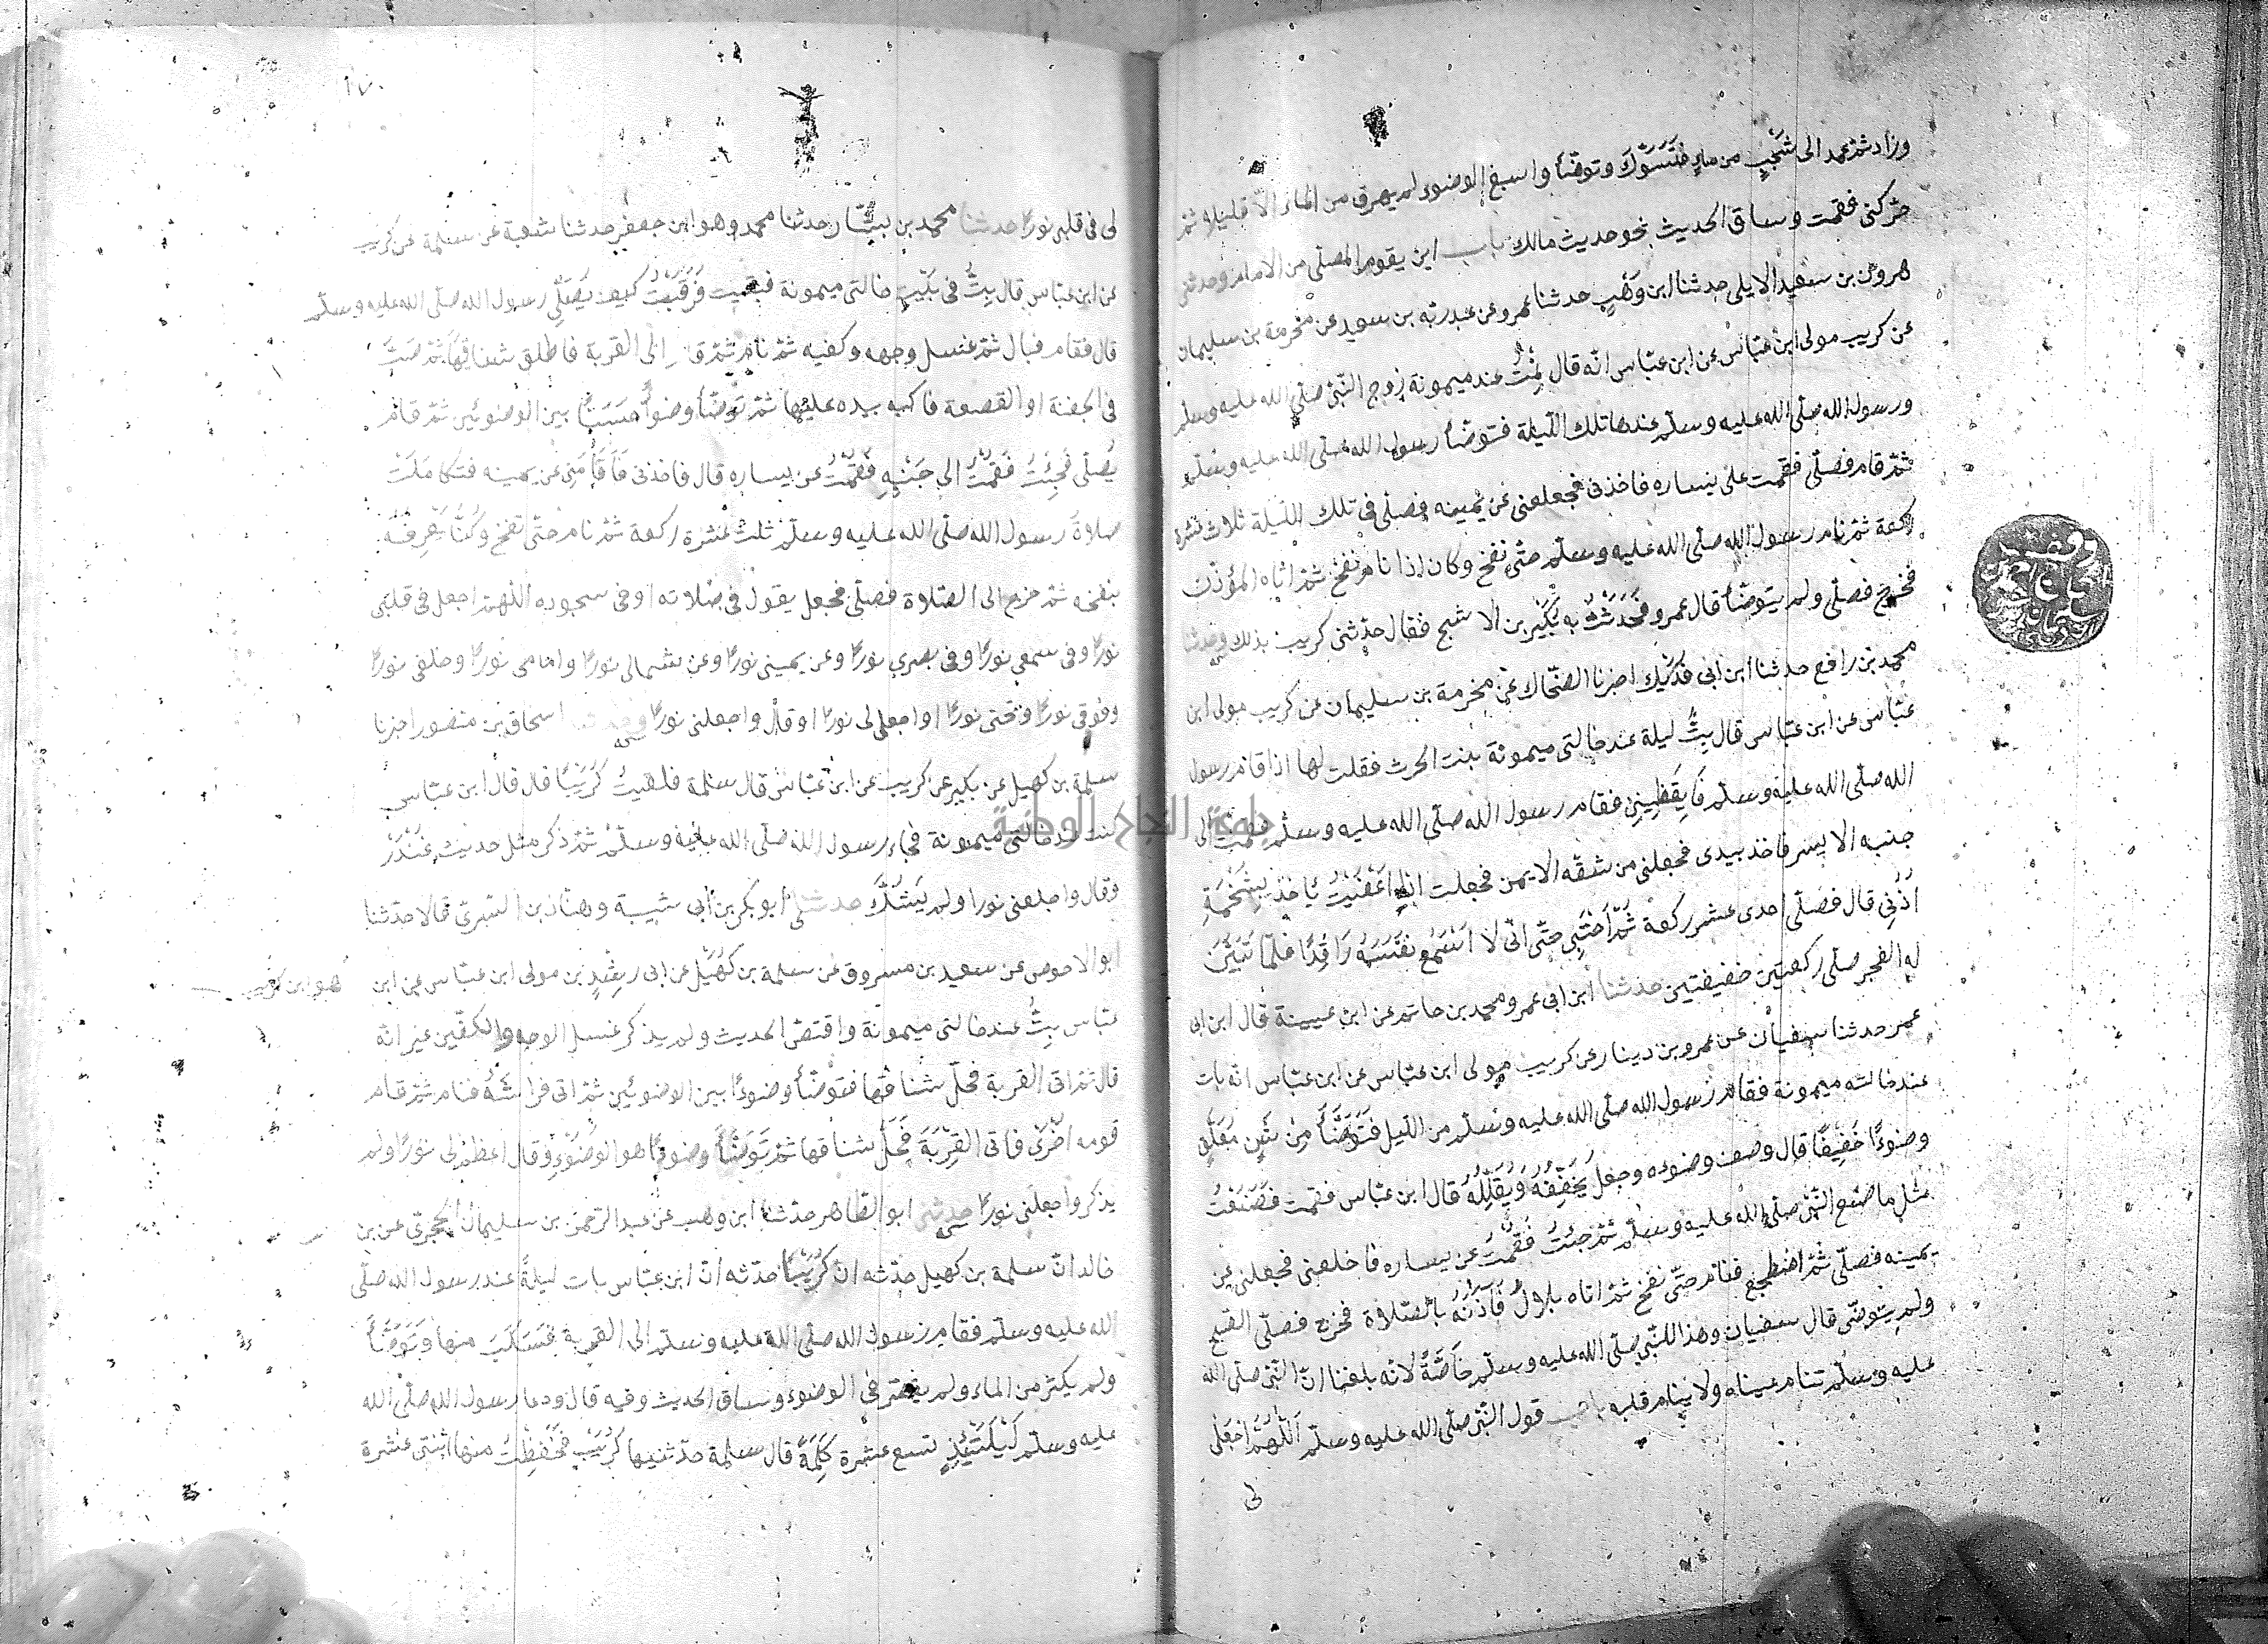 وزاد ثم عمد الى شجب من ماء فتسوك وتوضأ واسبغ الوضوء ولم يهرق من الماء الا قليلا ثم
حركنى فقمت وساق الحديث نحو حديث مالك باب اين يقوم المصلى من الامام وحدثنى
هرون بن سعيد الايلى حدثنا ابن وهب حدثنا عمرو عن عبد ربه بن سعيد عن مخرمة بن سليمان
عن كريب مولى ابن عباس عن ابن عباس انه قال نمت عند ميمونة زوج النبى صلى الله عليه وسلم
ورسول الله صلى الله عليه وسلم عندها تلك الليلة فتوضأ رسول الله صلى الله عليه وسلم
ثم قام فصلى فقمت على يساره فاخذنى فجعلنى عن يمينه فصلى فى تلك الليلة ثلاث عشرة
ركعة ثم نام رسول الله صلى الله عليه وسلم حتى نفخ وكان اذا نام نفخ ثم اتاه المؤذن
فخرج فصلى ولم يتوضأ قال عمرو فحدثت به بكير بن الاشج فقال حدثنى كريب بذلك وحدثنا
محمد بن رافع حدثنا ابن ابى فديك اخبرنا الضحاك عن مخرمة بن سليمان عن كريب مولى ابن
عباس عن ابن عباس قال بت ليلة عند خالتى ميمونة بنت الحرث فقلت لها اذا قام رسول
الله صلى الله عليه وسلم فايقظينى فقام رسول الله صلى الله عليه وسلم فقمت الى
جنبه الايسر فاخذ بيدى فجعلنى من شقه الايمن فجعلت اذا اغفيت ياخذ بشحمة
اذنى قال فصلى احدى عشر ركعة ثم احتبى حتى انى لا اسمع نفسه راقدا فلما تبين
له الفجر صلى ركعتين خفيفتين حدثنا ابن ابى عمر ومحمد بن حاتم عن ابن عيينة قال ابن ابى
عمر حدثنا سفيان عن عمرو بن دينار عن كريب مولى ابن عباس عن ابن عباس انه بات
عند خالته ميمونة فقام رسول الله صلى الله عليه وسلم من الليل فتوضأ من شن معلق
وضوءا خفيفا قال وصف وضوءه وجعل يخففه ويقلله قال ابن عباس فقمت فصنعت
مثل ما صنع النبى صلى الله عليه وسلم ثم جئت فقمت عن يساره فاخلفنى فجعلنى عن
يمينه فصلى ثم اضطجع فنام حتى نفخ ثم اتاه بلال فآذنه بالصلاة فخرج فصلى الصبح
ولم يتوضى قال سفيان وهذا للنبى صلى الله عليه وسلم خاصة لانه بلغنا ان النبى صلى الله
عليه وسلم تنام عيناه ولا ينام قلبه باب قول النبى صلى الله عليه وسلم اللهم اجعل
لى
١٧٠
لى فى قلبى نورا حدثنا محمد بن بشار حدثنا محمد وهو ابن جعفر حدثنا شعبة عن سلمة عن كريب
عن ابن عباس قال بت فى بيت خالتى ميمونة فبقيت فرقبت كيف يصلى رسول الله صلى الله عليه وسلم
قال فقام فبال ثم غسل وجهه وكفيه ثم نام ثم قام الى القربة فاطلق شناقها ثم صب
فى الجفنة او القصعة فاكبه بيده عليها ثم توضأ وضوءا حسنا بين الوضوئين ثم قام
يصلى فجئت فقمت الى جنبه فقمت عن يساره قال فاخذنى فاقامنى عن يمينه فتكاملت
صلاة رسول الله صلى الله عليه وسلم ثلث عشرة ركعة ثم نام حتى نفخ وكنا نعرفه
بنفخه ثم خرج الى الصلاة فصلى فجعل يقول فى صلاته او فى سجوده اللهم اجعل فى قلبى
نورا وفى سمعى نورا وفى بصرى نورا وعن يمينى نورا وعن شمالى نورا وامامى نورا وخلفى نورا
وفوقى نورا وتحتى نورا واجعل لى نورا او قال واجعلنى نورا وحدثنا اسحاق بن منصور اخبرنا
سلمة بن كهيل عن بكير عن كريب عن ابن عباس قال سلمة فلقيت كريبا فقال قال ابن عباس
كنت عند خالتى ميمونة فجاء رسول الله صلى الله عليه وسلم ثم ذكر مثل حديث غندر
وقال واجعلنى نورا ولم يشك حدثنا ابو بكر بن ابى شيبة وهناد بن السرى قالا حدثنا
ابو الاحوص عن سعيد بن مسروق عن سلمة بن كهيل عن ابى رشدين مولى ابن عباس عن ابن
هو ابن كريب
عباس بت عند خالتى ميمونة واقتص الحديث ولم يذكر غسل الوجه والكفين غير انه
قال ثم اتى القربة فحل شناقها فتوضأ وضوءا بين الوضوئين ثم اتى فراشه فنام ثم قام
قومه اخرى فاتى القربة فحل شناقها ثم توضأ وضوءا هو الوضوء وقال اعظم لى نورا ولم
يذكر واجعلنى نورا حدثنى ابو الطاهر حدثنا ابن وهب عن عبد الرحمن بن سليمان الحجرى عن بن
خالد ان سلمة بن كهيل حدثه ان كريبا حدثه ان ابن عباس بات ليلة عند رسول الله صلى
الله عليه وسلم فقام رسول الله صلى الله عليه وسلم الى القربة فسكب منها وتوضأ
ولم يكثر من الماء ولم يقصر فى الوضوء وساق الحديث وفيه قال ودعا رسول الله صلى الله
عليه وسلم ليلتئذ تسع عشرة كلمة قال سلمة حدثنيها كريب فحفظت منها اثنتى عشرة
جامعة النجاح الوطنية